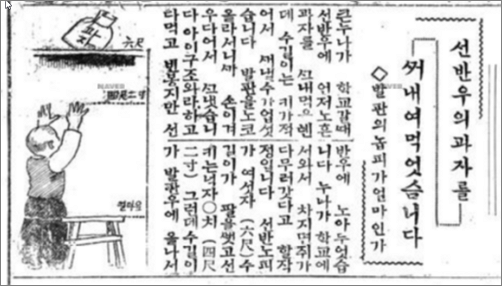 선반우의 과자를
꺼내여먹엇슴니다
◇발판의놉피가얼마인가
큰누나가 학교갈때
선반우에 언저노흔
과자를 ᄭᅥ내먹으렌
데 수길이는 키가적
어서 채낼수가업섯
습니다 발판을노코
올라서니까 손이겨
우다어서 ᄭᅥ냇습니
다 아이구조와라하고
다먹고 빈봇지만 선
반우에 노아두엇습
니다 누나가 학교에
서와서 차지면쥐가
다무러갓다고 할작
정입니다 선반노피
가 여섯자(六尺)수
길이가 팔을뻿고선
키는넉자○치(四尺
二寸) 그런데수길이
가 발판우에 올나서
과자
六尺
四尺二寸